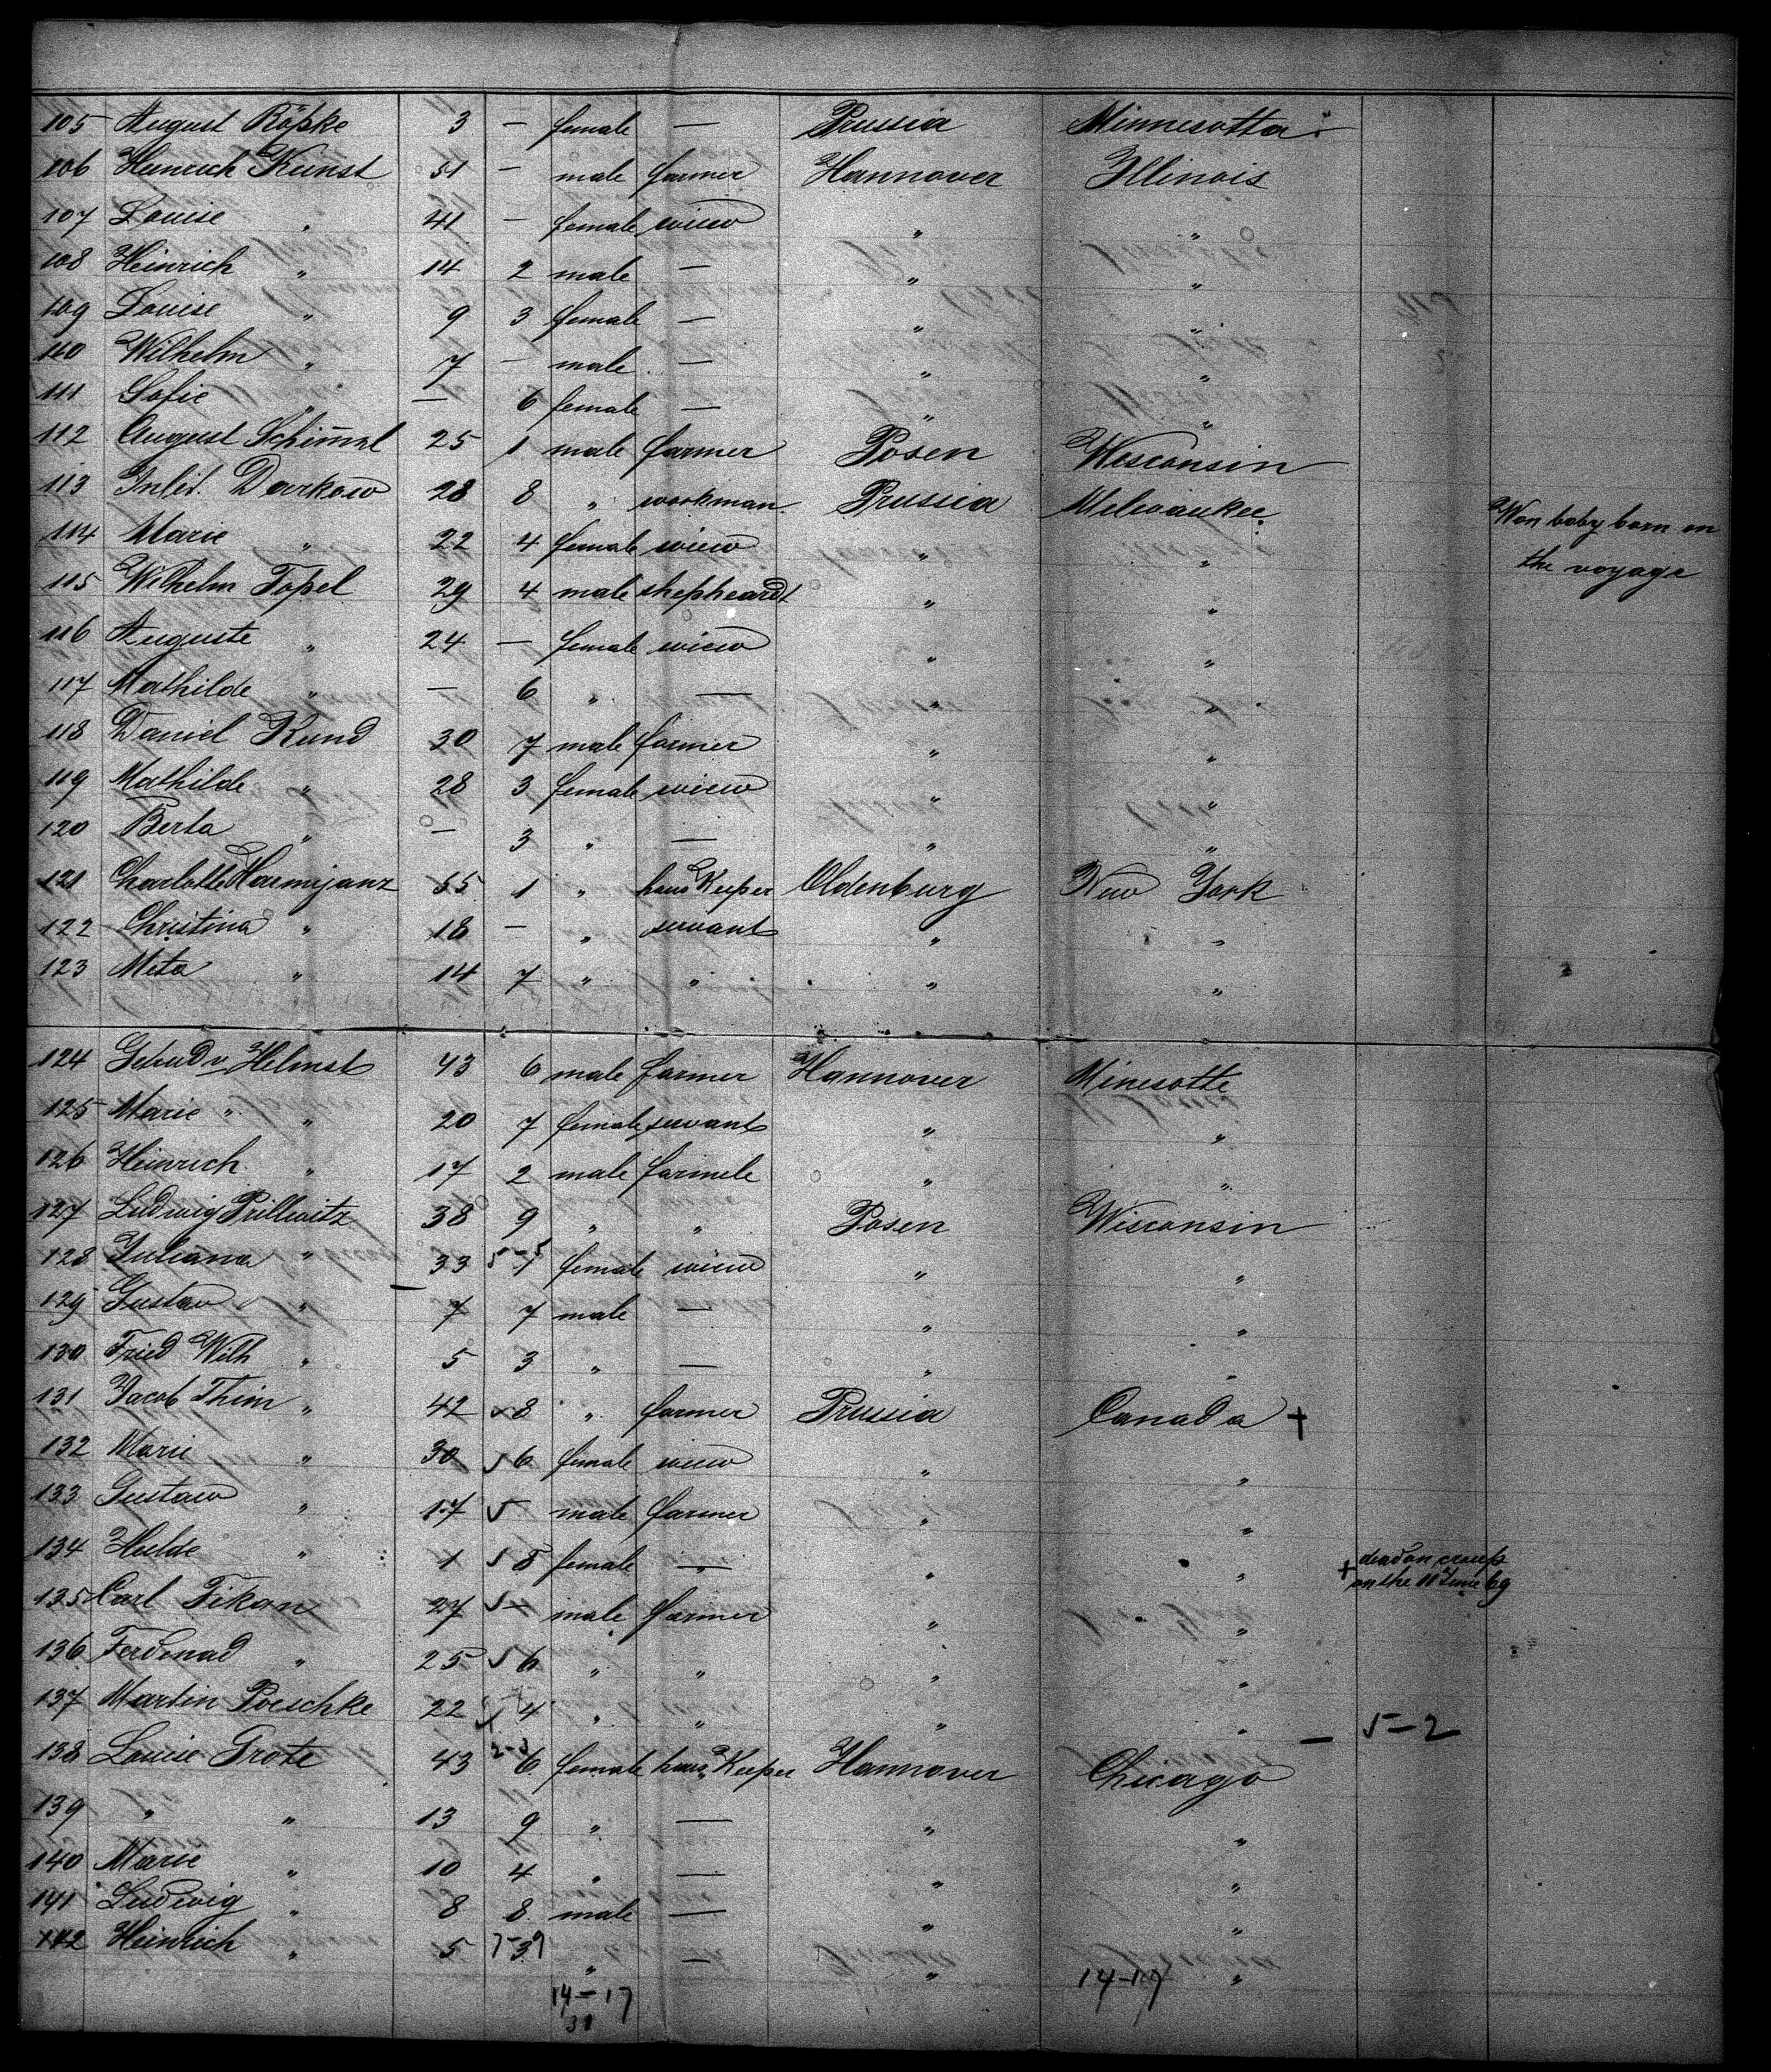 105 August Röpke 3 — female — Prussia Minnesotta
106 Heinrich Kunst 51 — male farmer Hannover Illinois
107 Louise " 41 — female wiew " "
108 Heinrich " 14 2 male — " "
109 Louise " 9 3 female — " "
110 Wilhelm " 7 — male — " "
111 Sofie " — 6 female — " "
112 August Schimml 25 1 male farmer Posen Wesconsin
113 Darkow 28 8 " workman Prussia Melwaukee
Won baby born on
114 Marie " 22 4 female wiew " "
the voyage
115 Wilhelm Topel 29 4 male shepheardt " "
116 Auguste " 24 — female wiew " "
117 Mathilde " — 6 " — " "
118 Daniel Kund 30 7 male farmer " "
119 Mathilde " 28 3 female wiew " "
120 Berta " — 3 " — " "
121 Charlotte Harmijanz 55 1 " haus Keeper Oldenburg New York
122 Christina " 18 — " servant " "
123 Meta " 14 7 " " " "
124 Helmst 43 6 male farmer Hannover Minesotte
125 Marie " " 20 7 female servant " "
126 Heinrich " 17 2 male farmele " "
127 Ludwig Prillwitz 38 9 " " Posen Wisconsin
128 Juliana " 33 5-5 1 female wiew " "
129 Gustav " 7 7 male — " "
130 Fried Wilh " 5 3 " — " "
131 Jacob Thim " 42 8 " farmer Prussia Canada +
132 Marie " 30 6 female wiew " "
133 Gustaw " 17 male farmer " "
134 Hulde " 1 8 female — " " + dead on croup
on the 11 June 69
135 Carl Fikan 27 — male farmer " "
136 Ferdinad " 25 6 " " " "
137 Martin Poeschke 22 4 " " " "
— 5-2
138 Louise Grote 43 2-3 6 female haus Keeper Hannover Chicago
139 " " 13 9 " — " "
140 Marie " 10 4 " — " "
141 Ludwig " 8 8 male — " "
142 Heinrich " 5 3 " — " "
14-17 14-17
31